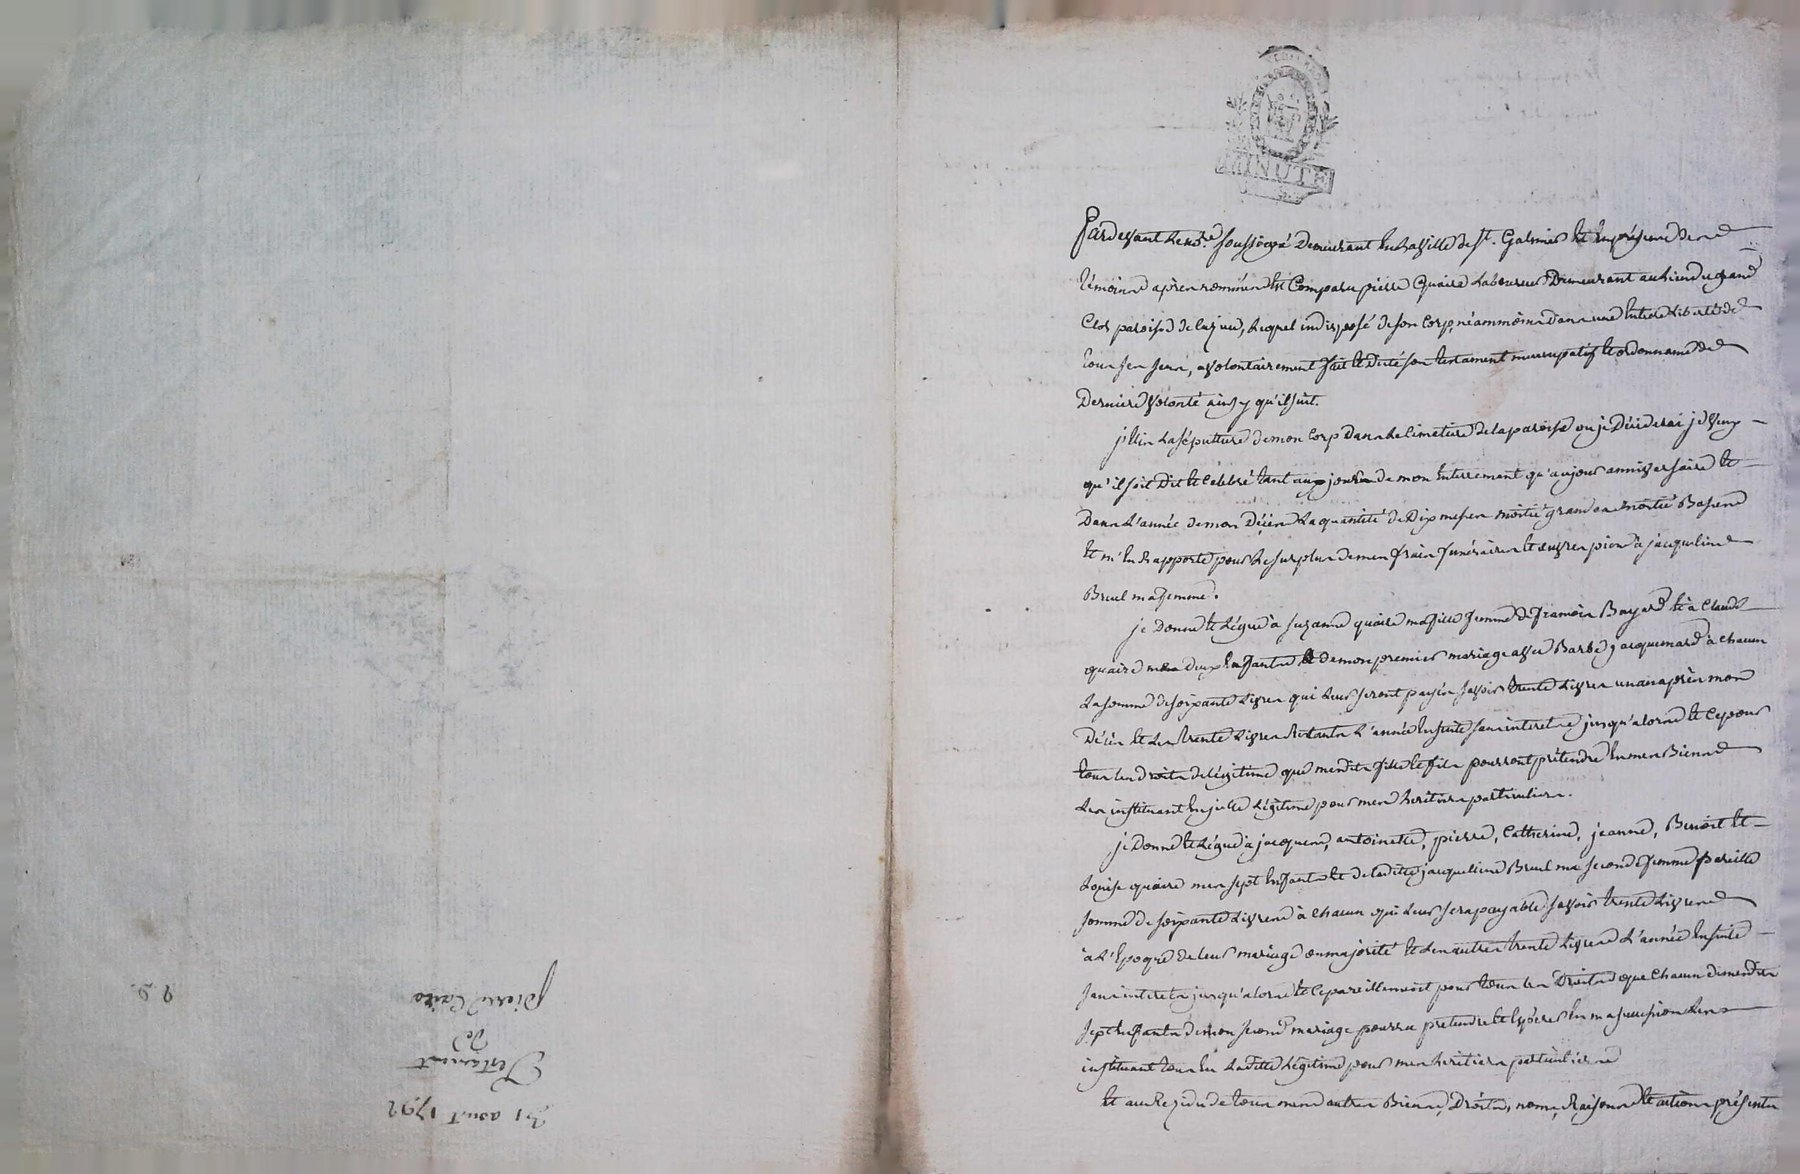 MINUTE
Pardevant Le no.re soussigné Demeurant En La ville de St. Galmier Et En présence des
témoins après nommés Est Comparu pierre Quaire Laboureur Demeurant au Lieu du grand
Clos paroisse de Luzieu, Lequel indisposé de son Corp, néammoins dans une Entiere Liberté de
tous ses sens, a volontairement fait Et Dicté son testament nuncupatif Et ordonnance de
Derniere volonté ainsy qu'il suit.
j'Elis La sépulture de mon Corp Dans Le Cimetiere de la paroisse ou je Déciderai je veux
qu'il soit Dit Et Célébré tant aux jours de mon Enterrement qu'au jour anniversaire Et
Dans L'année de mon Décès La quantité de Dix messes moitié grandes moitié Basses
Et m'En Rapporte pour Le surplus de mes frais funéraires Et œuvres pies à jacqueline
Breul ma femme.
je Donne Et Légue à suzanne quaire ma fille femme de françois Bayard Et à Claude
quaire mes deux Enfants Et de mon premier mariage avec Barbe jacquemard à chacun
La somme de soixante Livres qui Leur seront payés savoir trente Livres un an après mon
Décès Et Les trente Livres Restants L'année Ensuite sans interets jusqu'alors Et Ce pour
tous Les droits de Légitime que mesdits fille Et fils pourront prétendre En mes Biens
Les instituant En jcelle Légitime pour mes heritiers particuliers.
je Donne Et Légue à jacques, antoinette, pierre, Catherine, jeanne, Benoit Et
Louise quaire mes sept Enfants Et de Laditte jacqueline Breul ma seconde femme pareille
somme de soixante Livres à Chacun qui Leur sera payable savoir trente Livres
à L'Epoque de Leur mariage ou majorité Et Les autres trente Livres L'année Ensuite
sans interets jusqu'alors Et Ce pareillement pour tous Les Droits que Chacun de mesdits
sept Enfants de mon second mariage pourra pretendre Et Espérer En ma succession Les
instituant tous En Laditte Légitime pour mes heritiers particuliers
Et au Rezidu de tous mes autres Biens, Droits, noms, Raisons Et actions présents
31 aout 1792
Testament
de
pierre Caire